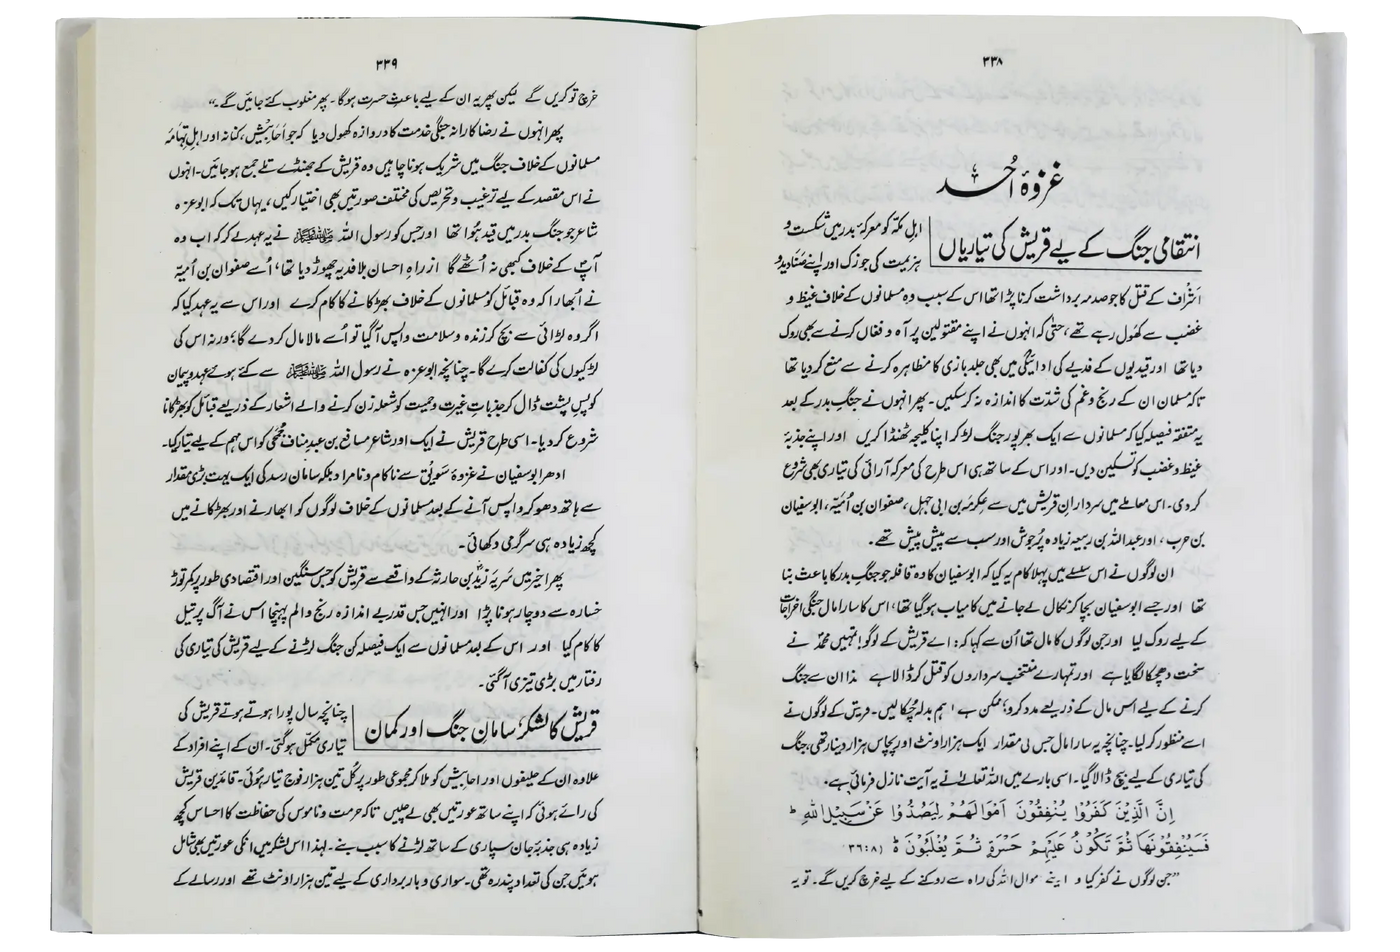 ۳۳۸
غزوۂ اُحد
انتقامی جنگ کے لیے قریش کی تیاریاں
اہلِ مکّہ کو معرکۂ بدر میں شکست و
ہزیمت کی جو زک اور اپنے صَنادید و
اَشْراف کے قتل کا جو صدمہ برداشت کرنا پڑا تھا اس کے سبب وہ مسلمانوں کے خلاف غیظ و
غضب سے کھول رہے تھے، حتیٰ کہ انہوں نے اپنے مقتولین پر آہ و فغاں کرنے سے بھی روک
دیا تھا اور قیدیوں کے فدیے کی ادائیگی میں بھی جلد بازی کا مظاہرہ کرنے سے منع کر دیا تھا
تاکہ مسلمان ان کے رنج و غم کی شدّت کا اندازہ نہ کر سکیں۔ پھر انہوں نے جنگِ بدر کے بعد
یہ متفقہ فیصلہ کیا کہ مسلمانوں سے ایک بھرپور جنگ لڑ کر اپنا کلیجہ ٹھنڈا کریں اور اپنے جذبۂ
غیظ و غضب کو تسکین دیں۔ اور اس کے ساتھ ہی اس طرح کی معرکہ آرائی کی تیاری بھی شروع
کر دی۔ اس معاملے میں سردارانِ قریش میں سے عِکرِمَہ بن ابی جہل، صفوان بن اُمَیّہ، ابو سفیان
بن حرب، اور عبد اللہ بن ربیعہ زیادہ پُرجوش اور سب سے پیش پیش تھے۔
ان لوگوں نے اس سلسلے میں پہلا کام یہ کیا کہ ابو سفیان کا وہ قافلہ جو جنگِ بدر کا باعث بنا
تھا اور جسے ابو سفیان بچا کر نکال لے جانے میں کامیاب ہو گیا تھا، اس کا سارا مال جنگی اخراجات
کے لیے روک لیا اور جن لوگوں کا مال تھا اُن سے کہا کہ : اے قریش کے لوگو! تمہیں محمدؐ نے
سخت دھچکا لگایا ہے اور تمہارے منتخب سرداروں کو قتل کر ڈالا ہے ان سے جنگ
کرنے کے لیے اس مال کے ذریعے مدد کرو، ممکن ہے ہم بدلہ چکا لیں۔ قریش کے لوگوں نے
اسے منظور کر لیا۔ چنانچہ یہ سارا مال جس کی مقدار ایک ہزار اونٹ اور پچاس ہزار دینار تھی، جنگ
کی تیاری کے لیے بیچ ڈالا گیا۔ اسی بارے میں اللہ تعالیٰ نے یہ آیت نازل فرمائی ہے۔
اِنَّ الَّذِيْنَ كَفَرُوْا يُنْفِقُوْنَ اَمْوَالَهُمْ لِيَصُدُّوْا عَنْ سَبِيْلِ اللّٰهِ ط
فَسَيُنْفِقُوْنَهَا ثُمَّ تَكُوْنُ عَلَيْهِمْ حَسْرَةً ثُمَّ يُغْلَبُوْنَ ط (۸:۳۶
”جن لوگوں نے کفر کیا وہ اپنے اموال اللہ کی راہ سے روکنے کے لیے خرچ کریں گے۔ تو یہ
۳۳۹
خرچ تو کریں گے لیکن پھر یہ ان کے لیے باعثِ حسرت ہو گا۔ پھر مغلوب کئے جائیں گے۔“
پھر انہوں نے رضا کارانہ جنگی خدمت کا دروازہ کھول دیا کہ جو اَحابِیش، کنانہ اور اہلِ تِہامَہ
مسلمانوں کے خلاف جنگ میں شریک ہونا چاہیں وہ قریش کے جھنڈے تلے جمع ہو جائیں۔ انہوں
نے اس مقصد کے لیے ترغیب و تحریص کی مختلف صورتیں بھی اختیار کیں، یہاں تک کہ ابو عزہ
شاعر جو جنگِ بدر میں قید ہوا تھا اور جس کو رسول اللہ ﷺ نے یہ عہد لے کر کہ اب وہ
آپؐ کے خلاف کبھی نہ اُٹھے گا ازراہِ احسان بلا فدیہ چھوڑ دیا تھا، اُسے صفوان بن اُمَیّہ
نے اُبھارا کہ وہ قبائل کو مسلمانوں کے خلاف بھڑکانے کا کام کرے اور اس سے یہ عہد کیا کہ
اگر وہ لڑائی سے بچ کر زندہ و سلامت واپس آ گیا تو اُسے مالا مال کر دے گا؛ ورنہ اس کی
لڑکیوں کی کفالت کرے گا۔ چنانچہ ابو عزہ نے رسول اللہ ﷺ سے کئے ہوئے عہد و پیمان
کو پسِ پشت ڈال کر جذباتِ غیرت و حمیت کو شعلہ زن کرنے والے اشعار کے ذریعے قبائل کو بھڑکانا
شروع کر دیا۔ اسی طرح قریش نے ایک اور شاعر مسافع بن عبدِ مناف جُمَحی کو اس مہم کے لیے تیار کیا۔
ادھر ابو سفیان نے غزوۂ سَوِیق سے ناکام و نامراد بلکہ سامانِ رسد کی ایک بہت بڑی مقدار
سے ہاتھ دھو کر واپس آنے کے بعد مسلمانوں کے خلاف لوگوں کو ابھارنے اور بھڑکانے میں
کچھ زیادہ ہی سرگرمی دکھائی۔
پھر اخیر میں سَریّہ زیدؓ بن حارثہ کے واقعے سے قریش کو جس سنگین اور اقتصادی طور پر کمر توڑ
خسارہ سے دوچار ہونا پڑا اور انہیں جس قدر بے اندازہ رنج و الم پہنچا اس نے آگ پر تیل
کا کام کیا اور اس کے بعد مسلمانوں سے ایک فیصلہ کن جنگ لڑنے کے لیے قریش کی تیاری کی
رفتار میں بڑی تیزی آ گئی۔
قریش کا لشکر، سامانِ جنگ اور کمان
چنانچہ سال پورا ہوتے ہوتے قریش کی
تیاری مکمّل ہو گئی۔ ان کے اپنے افراد کے
علاوہ ان کے حلیفوں اور احابیش کو ملا کر مجموعی طور پر کُل تین ہزار فوج تیار ہوئی۔ قائدینِ قریش
کی رائے ہوئی کہ اپنے ساتھ عورتیں بھی لے چلیں تاکہ حرمت و ناموس کی حفاظت کا احساس کچھ
زیادہ ہی جذبۂ جاں سپاری کے ساتھ لڑنے کا سبب بنے۔ لہٰذا اس لشکر میں انکی عورتیں بھی شامل
ہوئیں جن کی تعداد پندرہ تھی۔ سواری و بار برداری کے لیے تین ہزار اونٹ تھے اور رسالے کے